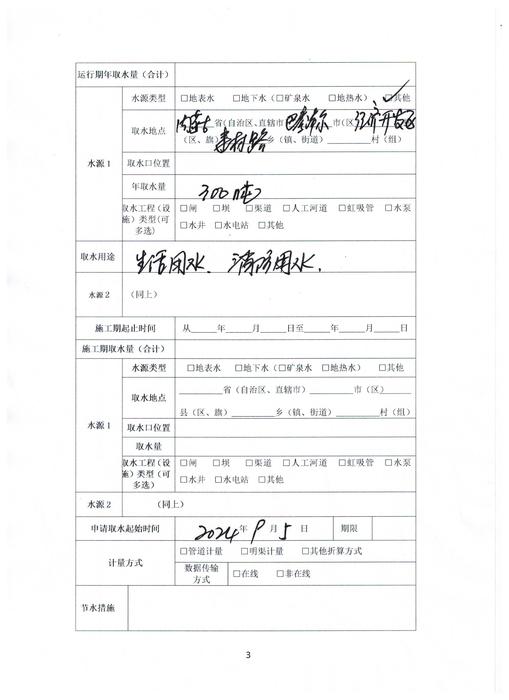 运行期年取水量（合计）
水源1
水源类型 □地表水 □地下水（□矿泉水 □地热水） ☑其他
取水地点 内蒙古省（自治区、直辖市）巴彦淖尔市（区）经济开发区
（区、旗）乡（镇、街道）________村（组）
取水口位置
年取水量 300吨
取水工程（设施）类型（可多选） □闸 □坝 □渠道 □人工河道 □虹吸管 □水泵
□水井 □水电站 □其他
取水用途 生活用水、消防用水.
水源2 （同上）
施工期起止时间 从_____年_____月_____日至_____年_____月_____日
施工期取水量（合计）
水源1
水源类型 □地表水 □地下水（□矿泉水 □地热水） □其他
取水地点 ________省（自治区、直辖市）________市（区）______
县（区、旗）________乡（镇、街道）________村（组）
取水口位置
取水量
取水工程（设施）类型（可多选） □闸 □坝 □渠道 □人工河道 □虹吸管 □水泵
□水井 □水电站 □其他
水源2 （同上）
申请取水起始时间 2024年9月5日 期限
计量方式 □管道计量 □明渠计量 □其他折算方式
数据传输方式 □在线 □非在线
节水措施
3